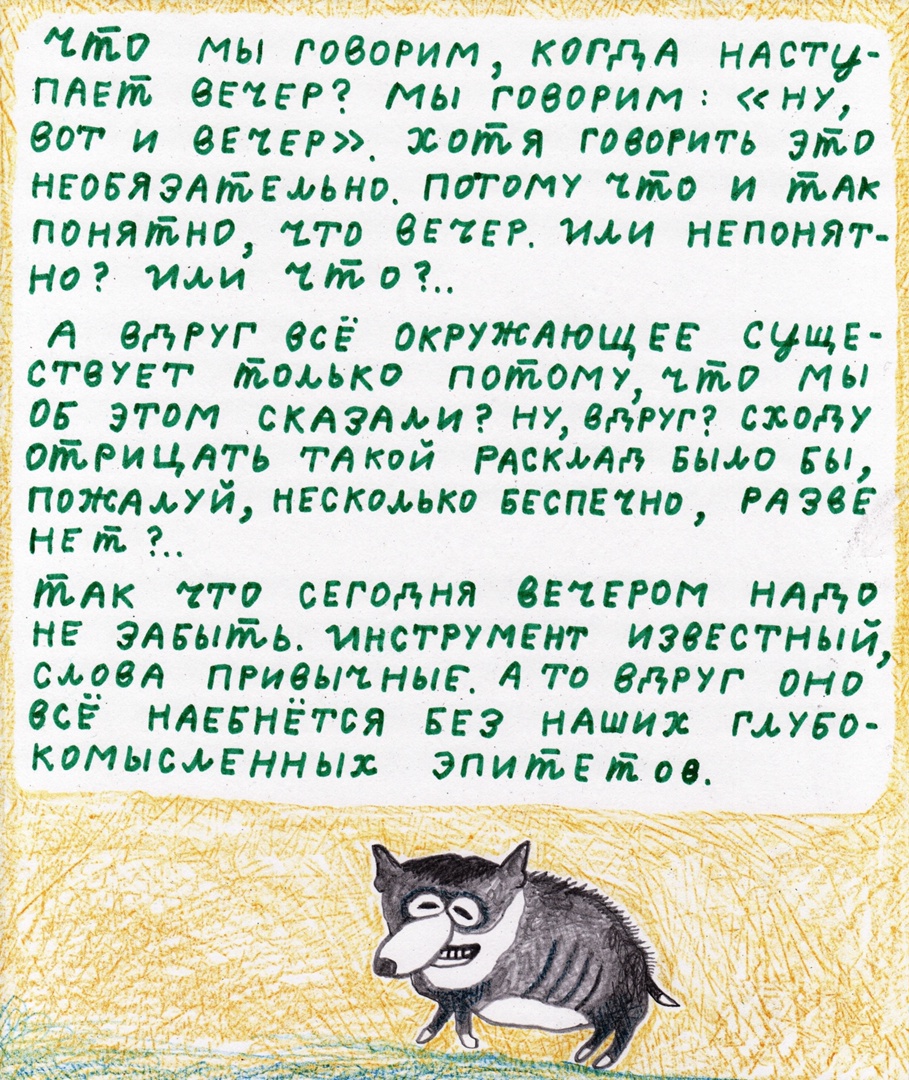 что мы говорим, когда насту-
пает вечер? мы говорим: «ну,
вот и вечер». хотя говорить это
необязательно. потому что и так
понятно, что вечер. или непонят-
но? или что?..
А вдруг всё окружающее суще-
ствует только потому, что мы
об этом сказали? ну, вдруг? сходу
отрицать такой расклад было бы,
пожалуй, несколько беспечно, разве
нет?..
так что сегодня вечером надо
не забыть. инструмент известный,
слова привычные. А то вдруг оно
всё наебнётся без наших глубо-
комысленных эпитетов.